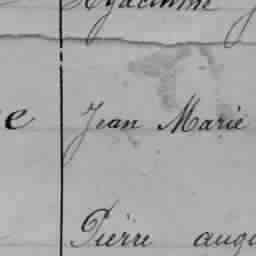 Hyacinthe
e Jean Marie
Pierre